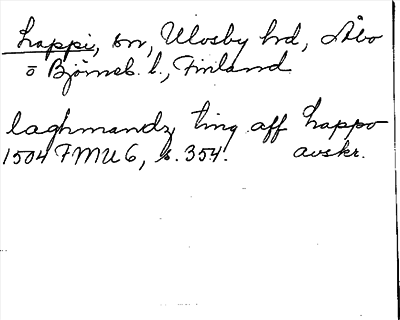 Lappi, sn, Ulvsby hd, Åbo
o Björneb. l., Finland
laghmandz ting aff Lappo
1504 FMU 6, s. 354. avskr.